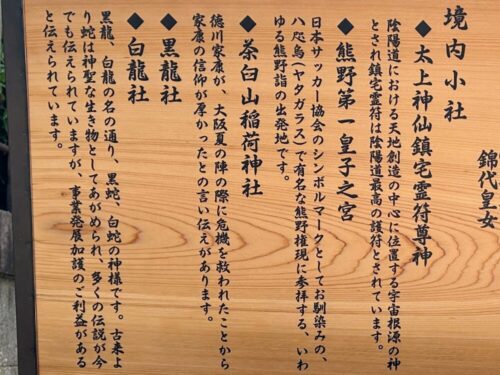 錦代皇女
境内小社
◆太上神仙鎮宅霊符尊神
陰陽道における天地創造の中心に位置する宇宙根源の神
とされ鎮宅霊符は陰陽道最高の護符とされています。
◆熊野第一皇子之宮
日本サッカー協会のシンボルマークとしてお馴染みの、
八咫烏(ヤタガラス)で有名な熊野権現に参拝する、いわ
ゆる熊野詣の出発地です。
◆茶臼山稲荷神社
徳川家康が、大阪夏の陣の際に危機を救われたことから
家康の信仰が厚かったとの言い伝えがあります。
◆黒龍社
◆白龍社
黒龍、白龍の名の通り、黒蛇、白蛇の神様です。古来よ
り蛇は神聖な生き物としてあがめられ、多くの伝説が今
でも伝えられていますが、事業発展加護のご利益がある
と伝えられています。